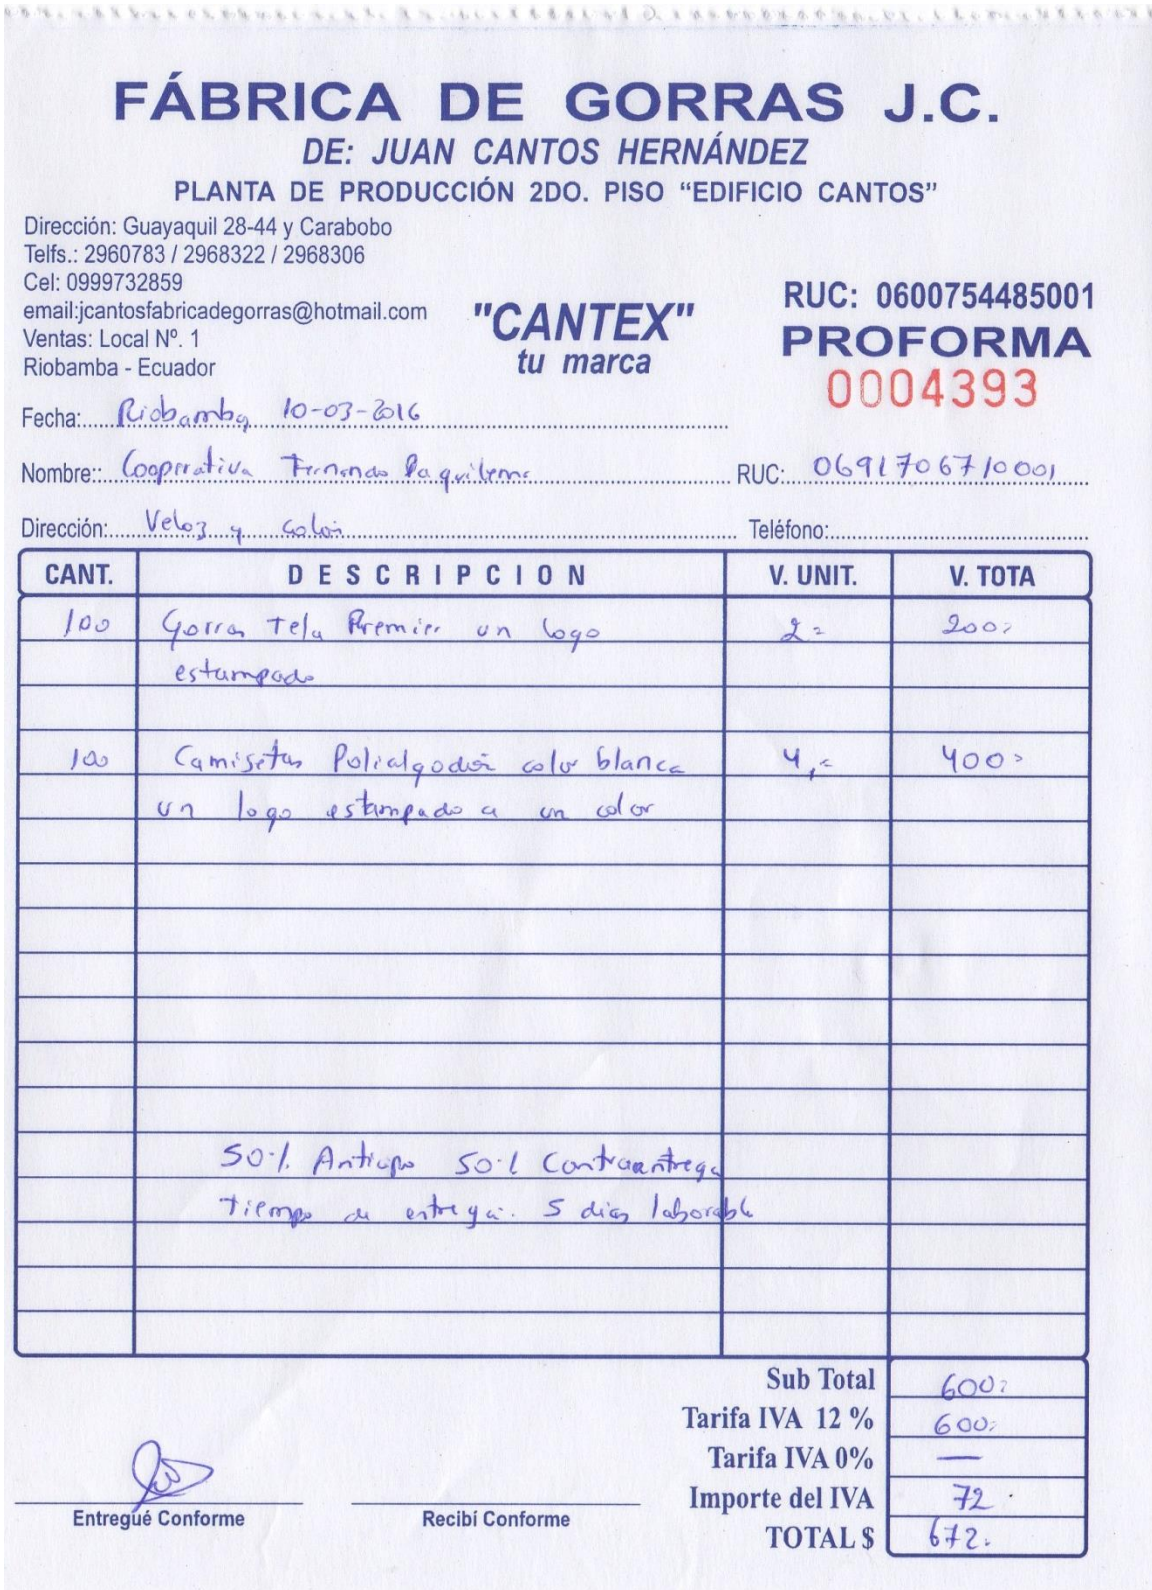 FÁBRICA DE GORRAS J.C.
DE: JUAN CANTOS HERNÁNDEZ
PLANTA DE PRODUCCIÓN 2DO. PISO “EDIFICIO CANTOS”
Dirección: Guayaquil 28-44 y Carabobo
Telfs.: 2960783 / 2968322 / 2968306
Cel: 0999732859
email:jcantosfabricadegorras@hotmail.com
Ventas: Local Nº. 1
Riobamba - Ecuador
"CANTEX"
tu marca
RUC: 0600754485001
PROFORMA
0004393
Fecha: Riobamba 10-03-2016
Nombre:: Cooperativa Fernando Daquilema RUC: 0691706710001
Dirección: Veloz y Colón Teléfono:
CANT. DESCRIPCION V. UNIT. V. TOTA
100 Gorras Tela Premier un logo 2= 200=
estampado
100 Camisetas Polialgodón color blanca 4,= 400=
un logo estampado a un color
50% Anticipo 50% Contraentrega
Tiempo de entrega. 5 dias laborable
Sub Total 600=
Tarifa IVA 12 % 600=
Tarifa IVA 0% —
Importe del IVA 72.
TOTAL $ 672.
Entregué Conforme Recibí Conforme